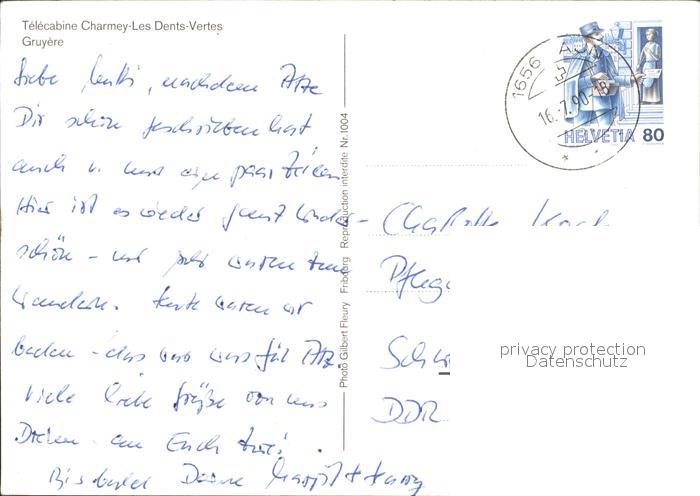 Télécabine Charmey-Les Dents-Vertes
Gruyère
Liebe nachdem
Dir schön geschrieben hat
auch v. uns ein paar Zeilen
Hier ist es wieder ganz wunder-
schön - und jetzt waren
wandern. Heute waren wir
baden - das war was für
Viele liebe Grüße von uns
Dreien - an Euch zwei!
Bis bald Deine
Photo Gilbert Fleury Fribourg Reproduction interdite Nr. 1004
1656
16.-7.90-18
HELVETIA 80
Charlotte
DDR
privacy protection
Datenschutz